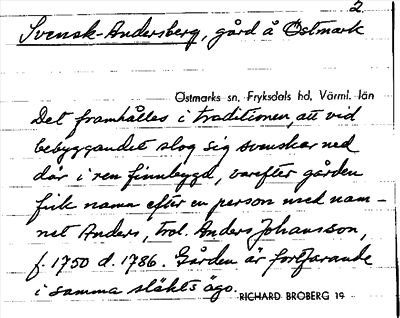 2
Svensk-Andersberg, gård å Östmark
Östmarks sn, Fryksdals hd, Värml. län
Det framhålles i traditionen, att vid
bebyggandet slog sig svenskar ned
där i ren finnbygd, varefter gården
fick namn efter en person med nam-
net Anders, trol. Anders Johansson,
f. 1750 d. 1786. Gården är fortfarande
i samma släkts ägo.
RICHARD BROBERG 19